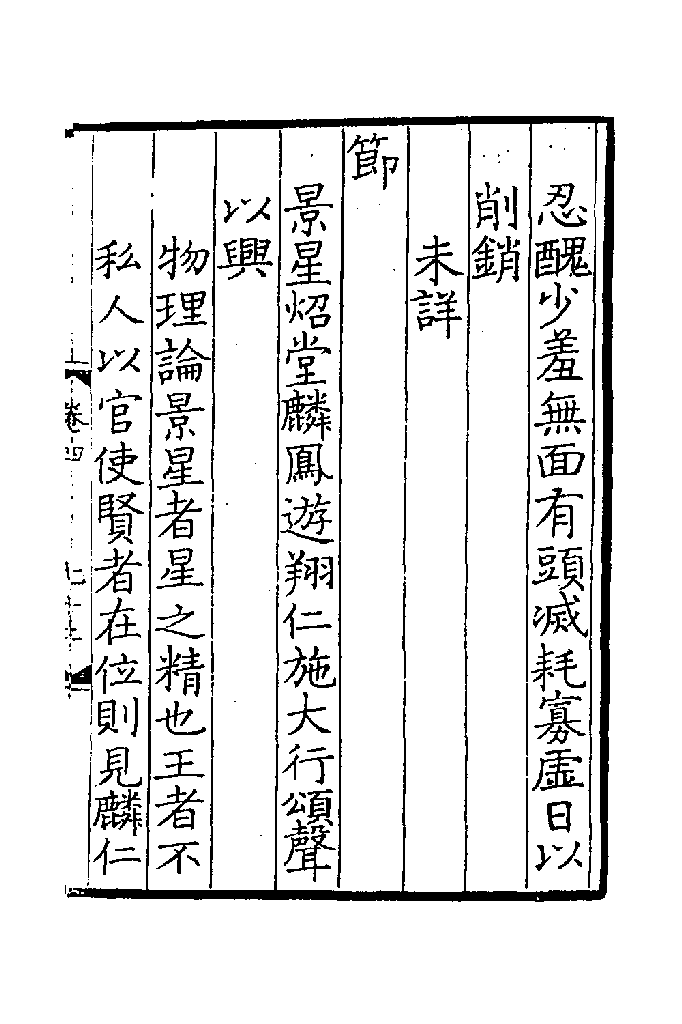 忍醜少羞無面有頭滅耗寡虛日以
削銷
未詳
節
景星炤堂麟鳳遊翔仁施大行頌聲
以興
物理論景星者星之精也王者不
私人以官使賢者在位則見麟仁
卷四